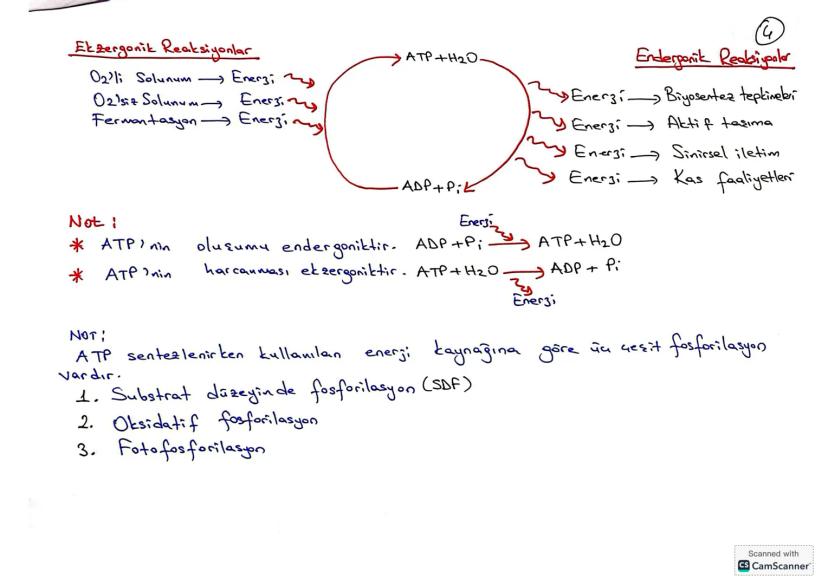 4
Ekzergonik Reaksiyonlar
O2'li Solunum → Enerji
O2'siz Solunum → Enerji
Fermantasyon → Enerji
ATP + H2O
ADP + Pi
Endergonik Reaksiyonlar
Enerji → Biyosentez tepkimeleri
Enerji → Aktif taşıma
Enerji → Sinirsel iletim
Enerji → Kas faaliyetleri
Not:
Enerji
* ATP'nin oluşumu endergoniktir. ADP + Pi → ATP + H2O
* ATP'nin harcanması ekzergoniktir. ATP + H2O → ADP + Pi
Enerji
NOT:
ATP sentezlenirken kullanılan enerji kaynağına göre üç çeşit fosforilasyon
vardır.
1. Substrat düzeyinde fosforilasyon (SDF)
2. Oksidatif fosforilasyon
3. Fotofosforilasyon
Scanned with
CS CamScanner